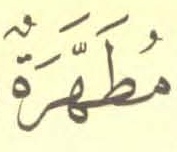 مُطَهَّرَةٌ